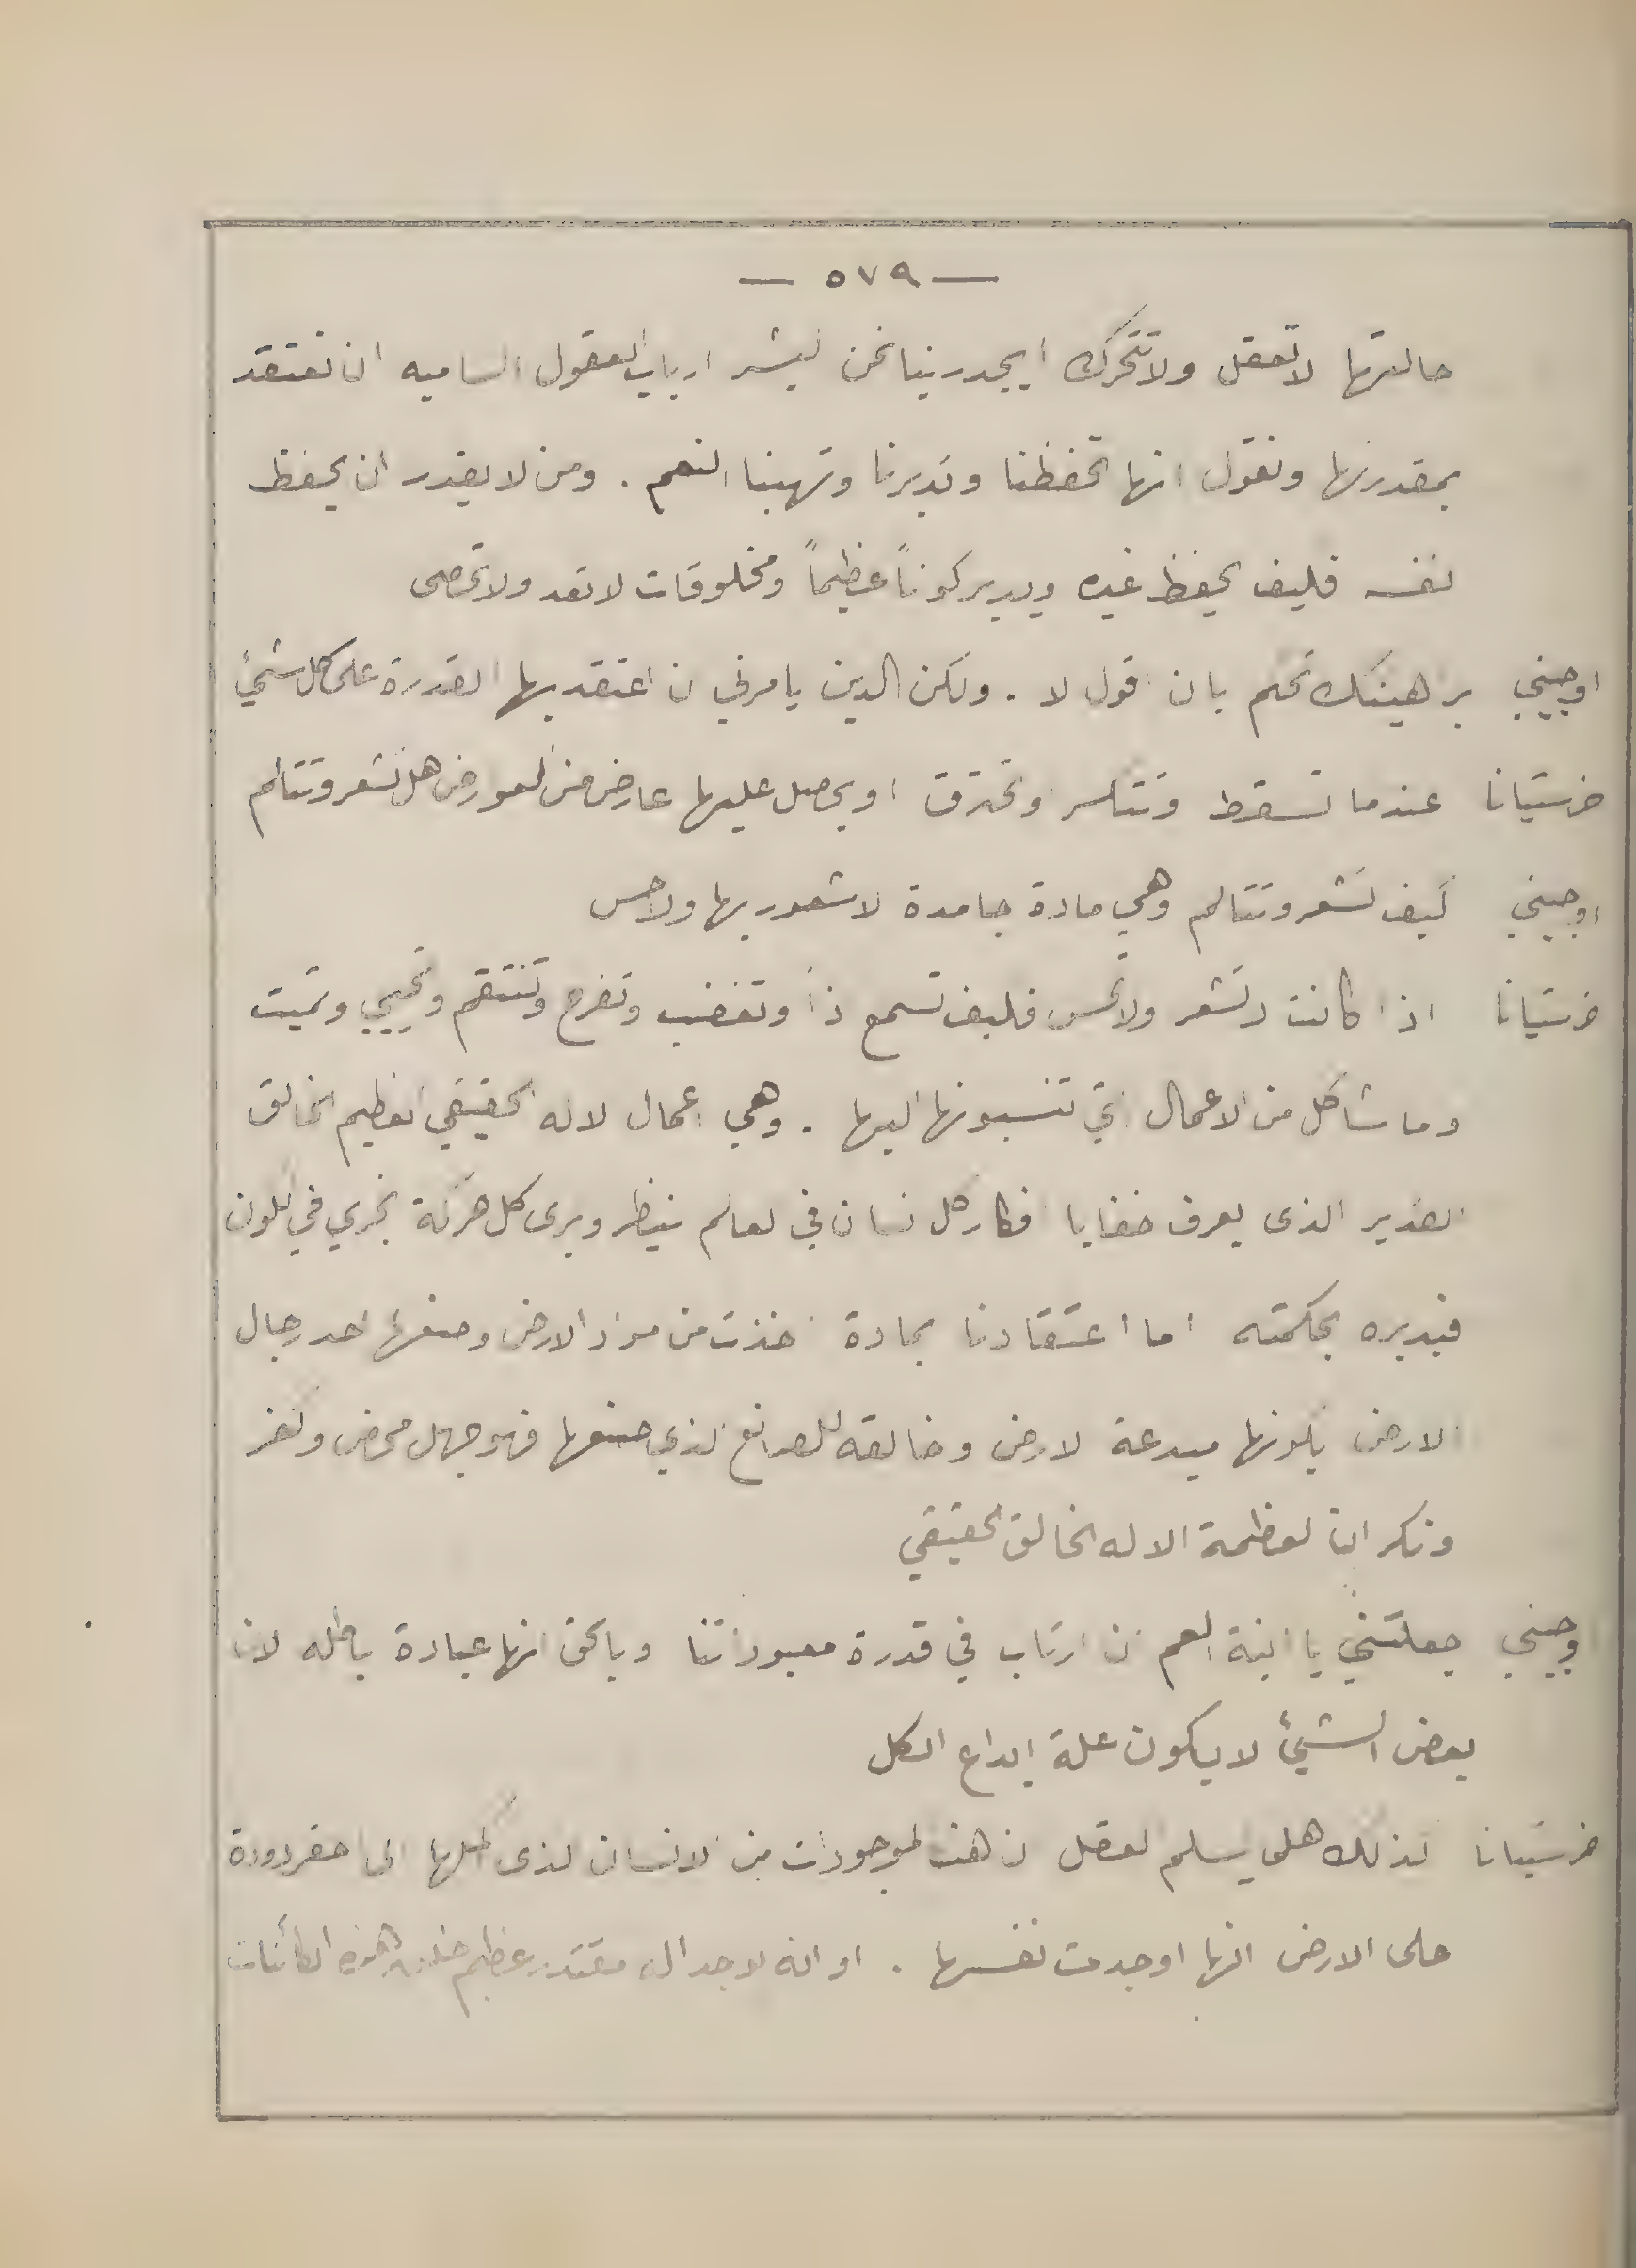 — ٥٧٩ —
حالتها لا تعقل ولا تتحرك ايجدر بنا نحن البشر ارباب العقول الساميه ان نعتقد
بمقدرتها ونقول انها تحفظنا وتديرنا وتهبنا النعم . ومن لا يقدر ان يحفظ
نفسه فكيف يحفظ غيره ويدير كوناً عظيماً ومخلوقات لا تعد ولا تحصى
اوجيني براهينك تحكم بان اقول لا . ولكن الدين يامرني ان اعتقد بها القدرة على كل شئ
خرستيانا عندما تسقط وتتكسر وتحترق او يحصل عليها عارض من العوارض هل تشعر وتتالم
اوجيني كيف تشعر وتتالم وهي مادة جامدة لا شعور بها ولا حس
خرستيانا اذا كانت لا تشعر ولا تحس فكيف تسمع اذاً وتغضب وتفرح وتنتقم وتحيي وتميت
وما شاكل من الاعمال التي تنسبونها اليها . وهي اعمال الاله الحقيقي العظيم الخالق
القدير الذى يعرف خفايا افكار كل انسان في العالم ينظر ويرى كل حركة تجري في الكون
فيديره بحكمته اما اعتقادنا بمادة اخذت من مواد الارض وصنعها احد رجال
الارض بكونها مبدعة الارض وخالقه للصانع الذي صنعها فهو جهل محض وكفر
ونكران لعظمة الاله الخالق الحقيقي
اوجيني جعلتني يا ابنة العم ان ارتاب في قدرة معبوداتنا وبالحق انها عبادة باطله لان
بعض الشئ لا يكون علة ابداع الكل
خرستيانا لذلك هل يسلم العقل ان هذه الموجودات من الانسان الذى اكملها الى احقر دودة
على الارض انها اوجدت نفسها . او انه يوجد اله مقتدر عظيم خلق هذه الكائنات